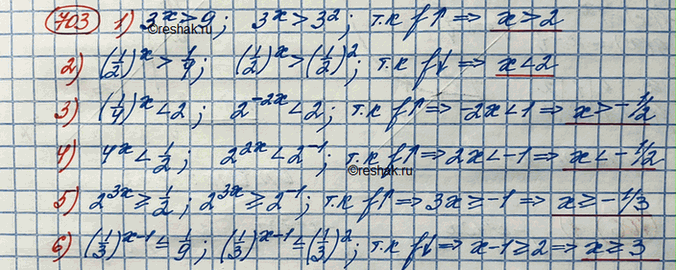 703 1) 3^x > 9; 3^x > 3^2; т.к f↑ ⇒ x > 2
©reshak.ru
2) (1/2)^x > 1/4; (1/2)^x > (1/2)^2; т.к f↓ ⇒ x < 2
3) (1/4)^x < 2; 2^{-2x} < 2; т.к f↑ ⇒ -2x < 1 ⇒ x > -1/2
4) 4^x < 1/2; 2^{2x} < 2^{-1}; т.к f↑ ⇒ 2x < -1 ⇒ x < -1/2
©reshak.ru
5) 2^{3x} ≥ 1/2; 2^{3x} ≥ 2^{-1}; т.к f↑ ⇒ 3x ≥ -1 ⇒ x ≥ -1/3
6) (1/3)^{x-1} ≤ 1/9; (1/3)^{x-1} ≤ (1/3)^2; т.к f↓ ⇒ x-1 ≥ 2 ⇒ x ≥ 3